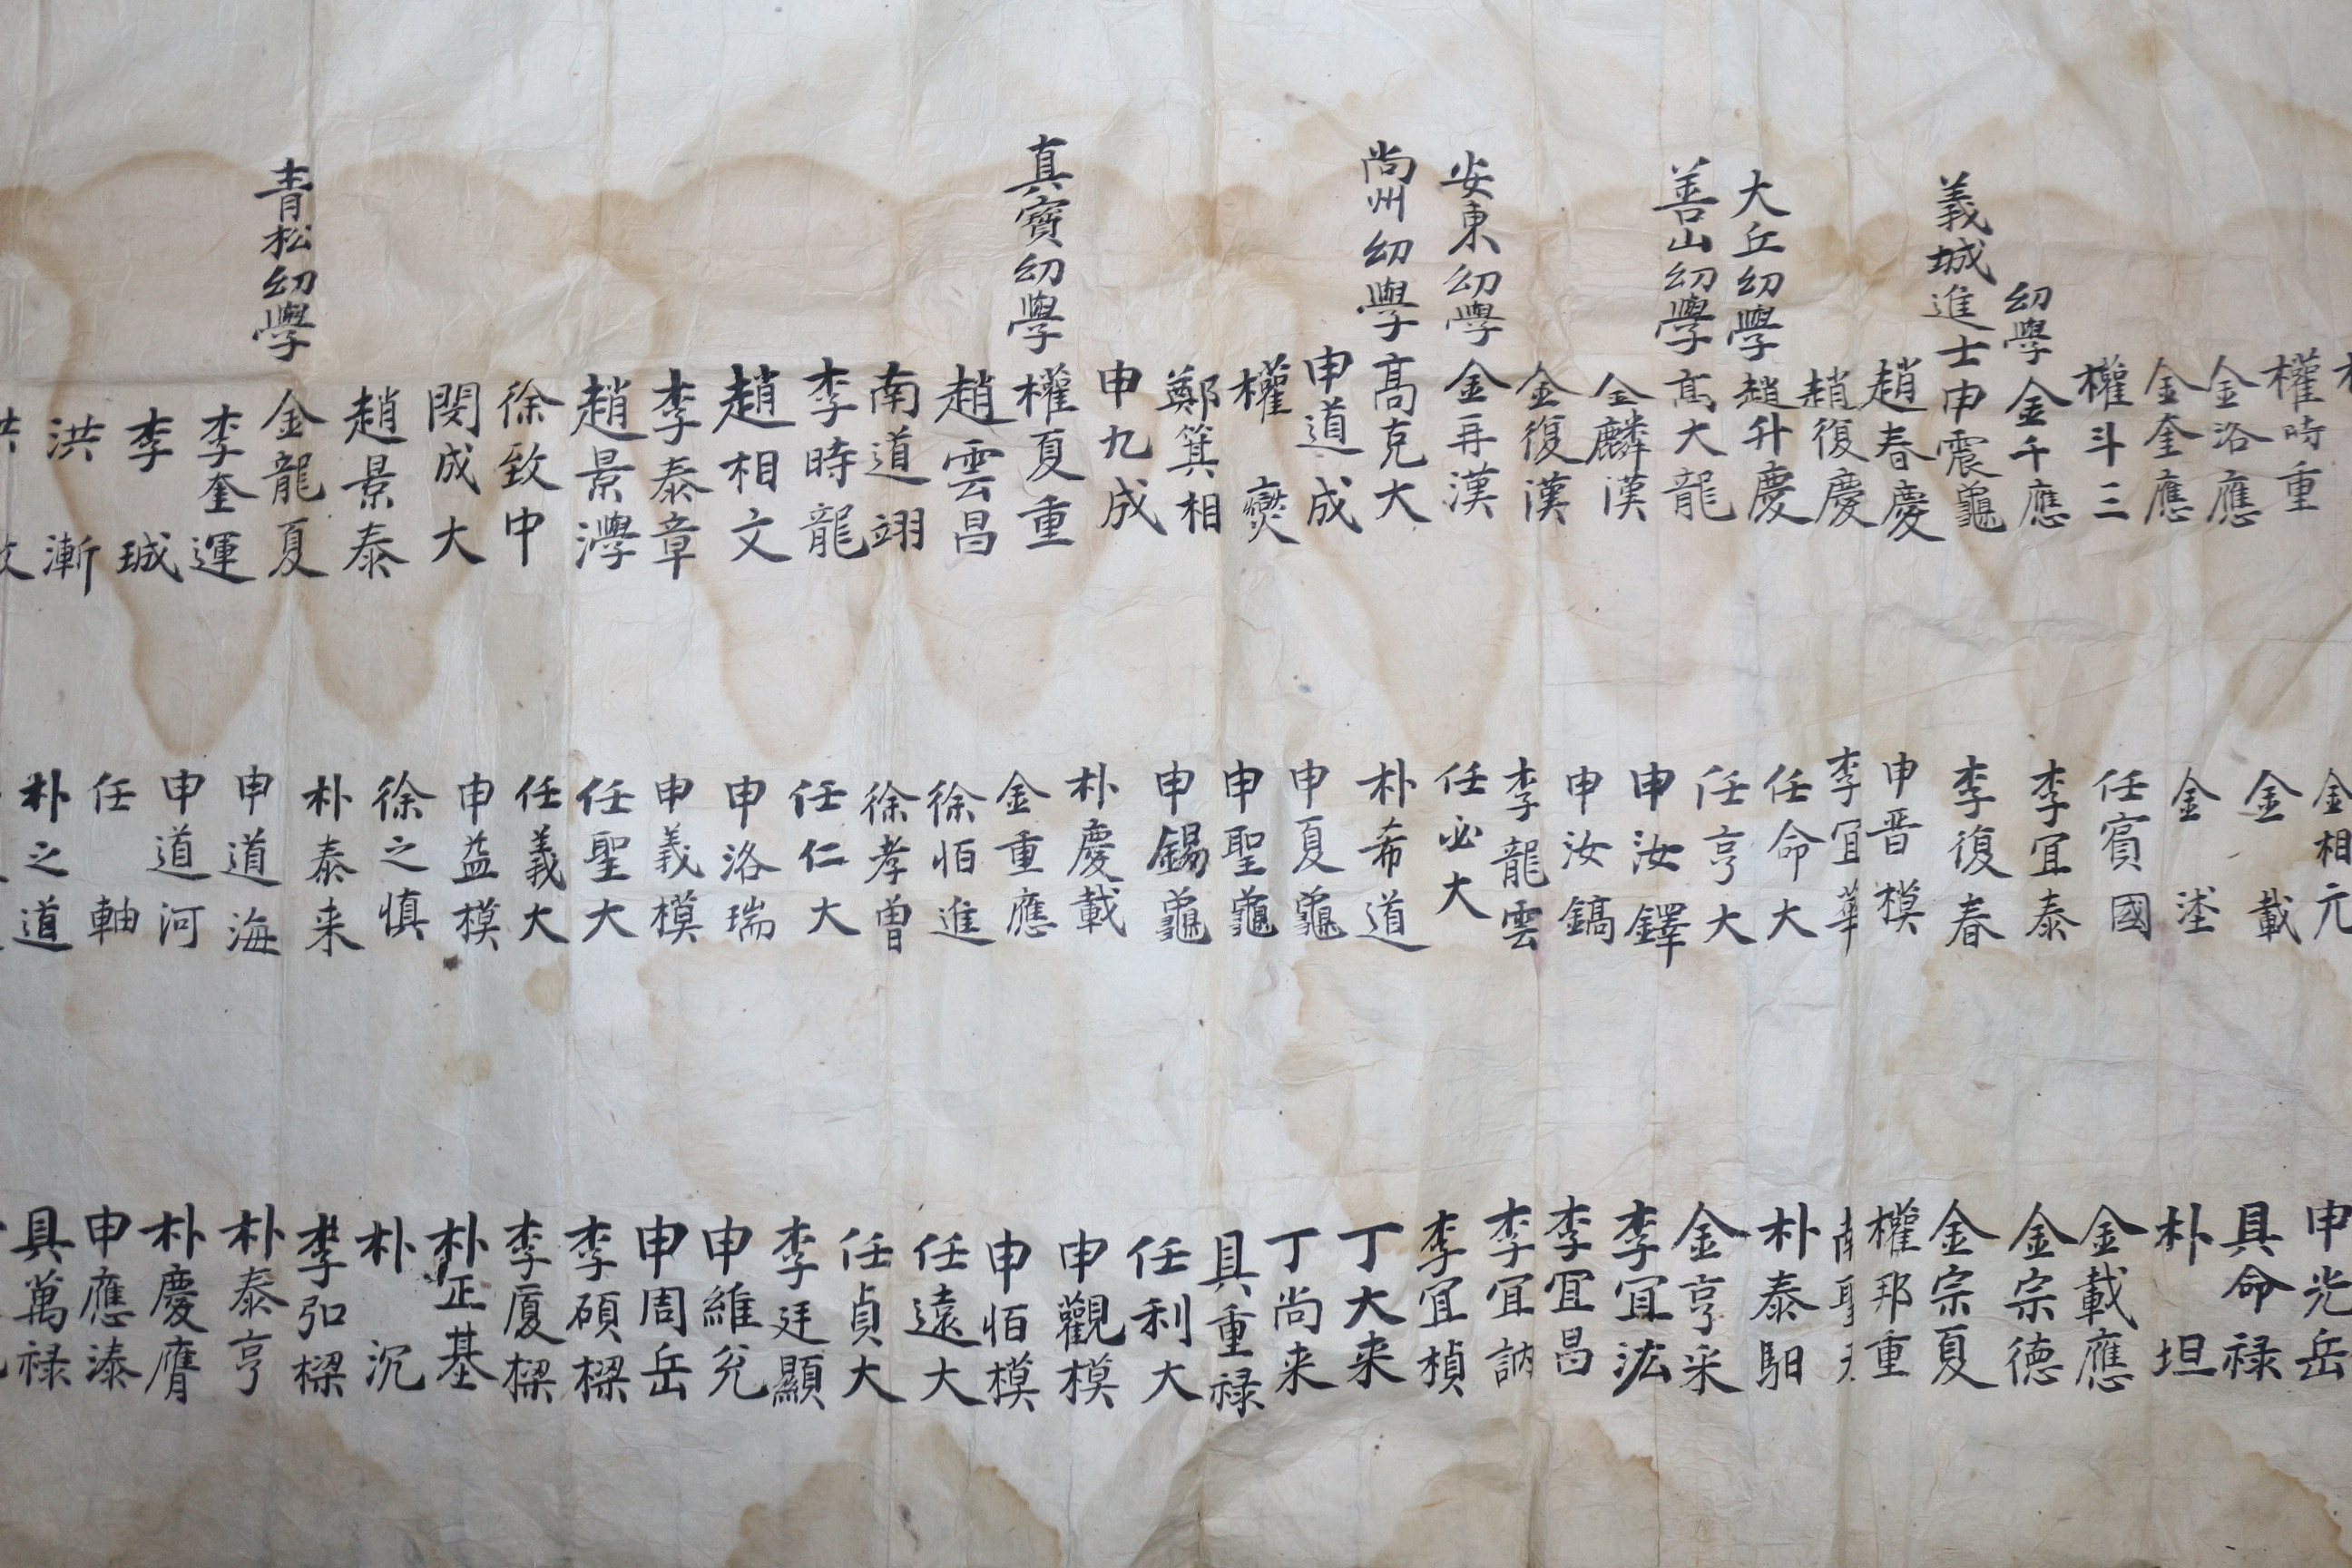 權時重
金洛應
金奎應
權斗三
幼學金千應
義城進士申震龜
趙春慶
趙復慶
大丘幼學趙升慶
善山幼學高大龍
金麟漢
金復漢
安東幼學金再漢
尚州幼學高克大
申道成
權
鄭箕相
申九成
真寶幼學權夏重
趙雲昌
南道翊
李時龍
趙相文
李泰章
趙景澩
徐致中
閔成大
趙景泰
青松幼學金龍夏
李奎運
李珹
洪漸
金相元
金載
金
任賓國
李宜泰
李復春
申晋模
李宜華
任命大
任亨大
申汝鐸
申汝鎬
李龍雲
任必大
朴希道
申夏龜
申聖龜
申錫龜
朴慶載
金重應
徐栢進
徐孝曾
任仁大
申洛瑞
申義模
任聖大
任義大
申益模
徐之慎
朴泰来
申道海
申道河
任軸
朴之道
申光岳
具命禄
朴坦
金載應
金宗德
金宗夏
權邦重
朴泰駰
金亨采
李宜浤
李宜昌
李宜訥
李宜楨
丁大来
丁尚来
具重禄
任利大
申觀模
申栢模
任遠大
任貞大
李廷顯
申維兌
申周岳
李碩樑
李廈樑
朴正基
朴沉
李弘樑
朴泰亨
朴慶膺
申應溙
具萬禄